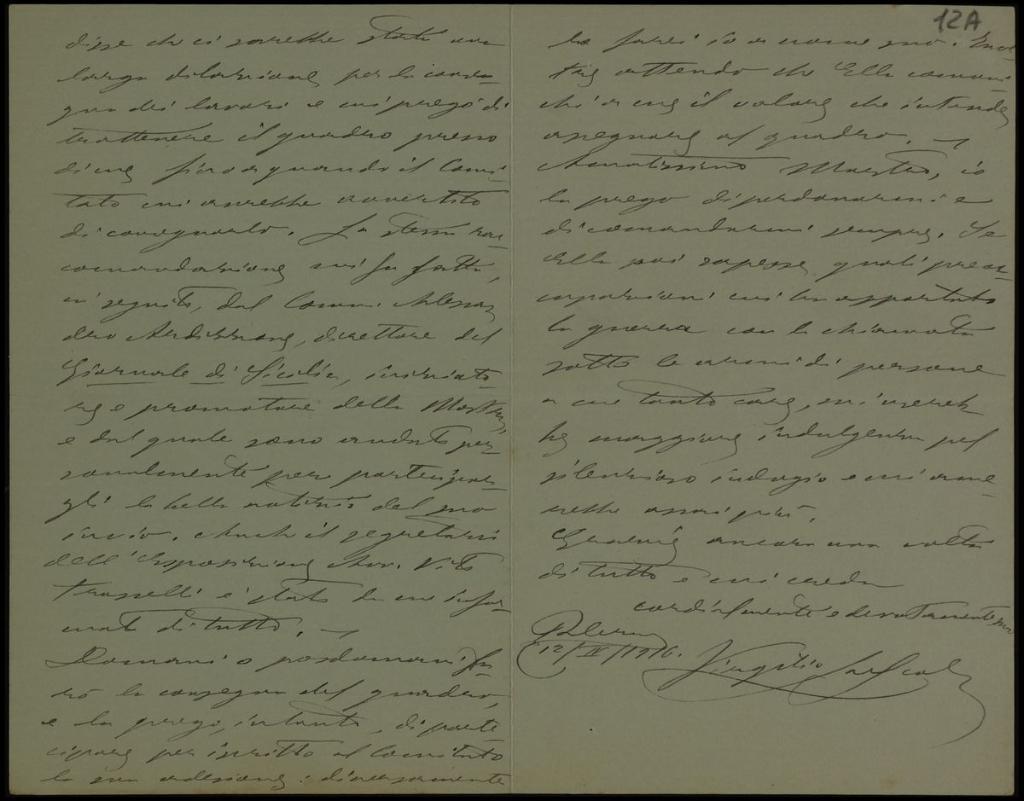 12A
disse che ci sarebbe stata una
larga dilazione per la conse-
gna dei lavori e mi pregò di
trattenere il quadro presso
di me fino a quando il Comi-
tato mi avrebbe avvertito
di consegnarlo. La stessa rac-
comandazione mi fu fatta,
in seguito, dal Comm. Alessan-
dro Ardizzone, direttore del
Giornale di Sicilia, iniziato-
re e promotore della Mostra,
e dal quale sono andato per-
sonalmente per partecipar-
gli la bella notizia del suo
invio. Anche il segretario
dell'Esposizione Avv. Vito
Trasselli è stato da me infor-
mato di tutto. —
Domani o posdomani fa-
rò la consegna del quadro,
e la prego, intanto, di parte-
cipare per iscritto al Comitato
la sua adesione: diversamente
la farei io a nome suo. Inol-
tre attendo che Ella comuni-
chi a me il valore che intende
assegnare al quadro. —
Amatissimo Maestro, io
la prego di perdonarmi e
di comandarmi sempre. Se
Ella poi sapesse quali preoc-
cupazioni mi ha apportato
la guerra con la chiamata
sotto le armi di persone
a me tanto care, mi usereb-
be maggiore indulgenza pel
silenzioso indugio e mi ame-
rebbe assai più.
Grazie ancora una volta
di tutto e mi creda
cordialmente e devotamente suo
Palermo
12/II/1916.
Virgilio